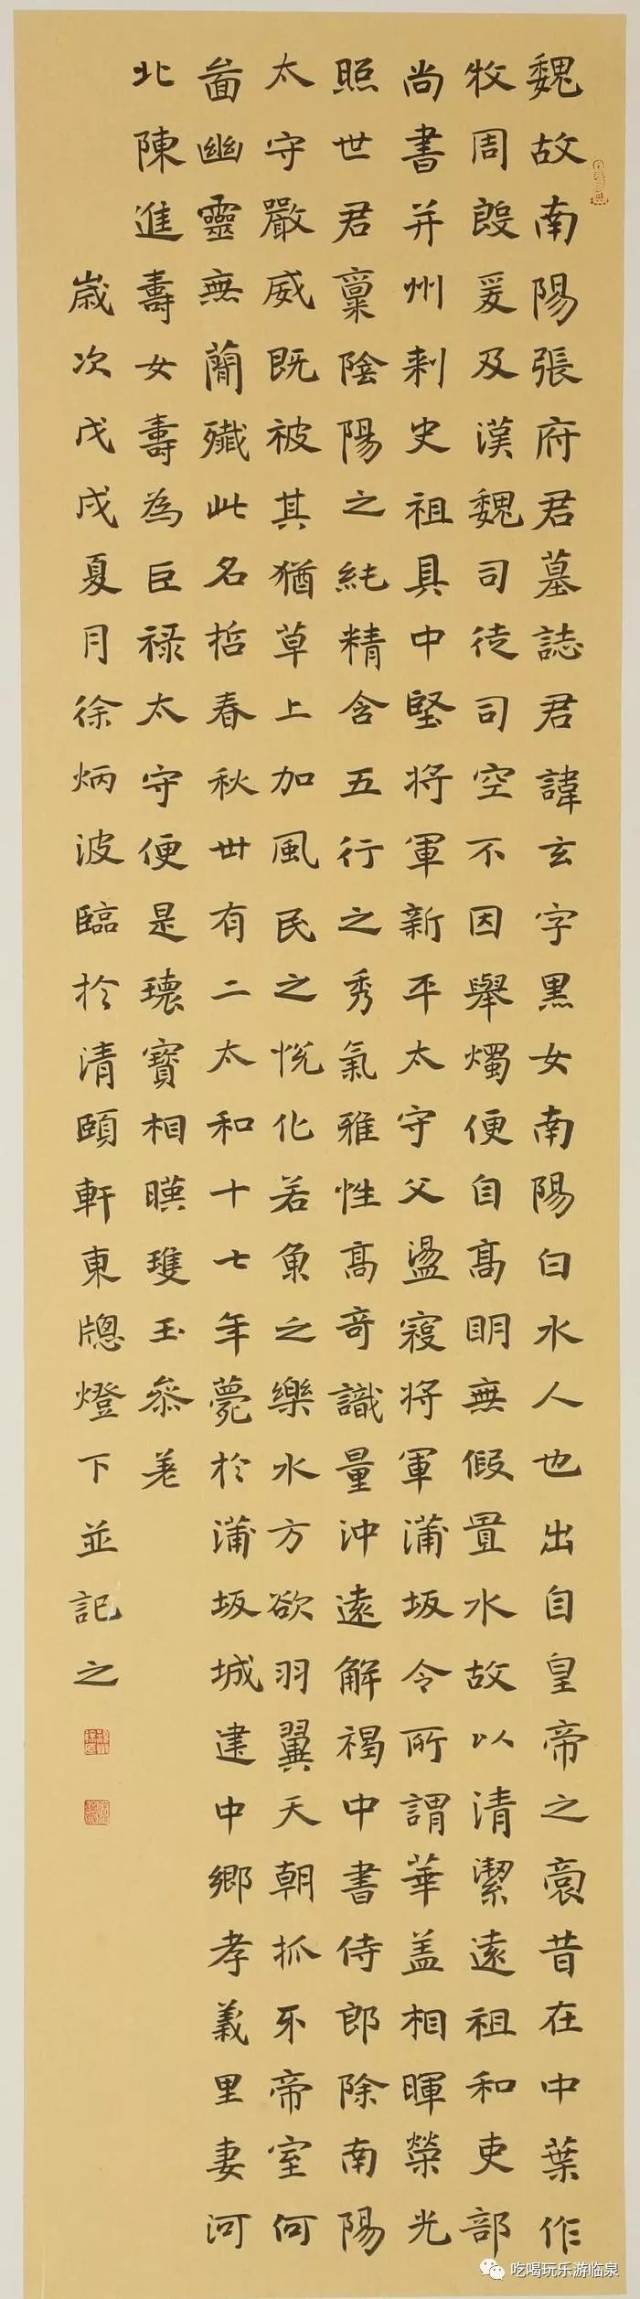 魏故南陽張府君墓誌君諱玄字黑女南陽白水人也出自皇帝之裔昔在中葉作
牧周殷爰及漢魏司徒司空不因舉燭便自高眀無假置水故以清潔遠祖和吏部
尚書并州刺史祖具中堅將軍新平太守父盪寇將軍蒲坂令所謂華盖相暉榮光
照世君稟陰陽之純精含五行之秀氣雅性高奇識量沖遠解褐中書侍郎除南陽
太守嚴威既被其猶草上加風民之悅化若魚之樂水方欲羽翼天朝抓牙帝室何
啚幽靈無簡殲此名哲春秋卅有二太和十七年薨於蒲坂城建中鄉孝義里妻河
北陳進壽女壽為巨祿太守便是瓌寶相暎瓊玉參差
歲次戊戌夏月徐炳波臨於清頤軒東牕燈下並記之
吃喝玩乐游临泉